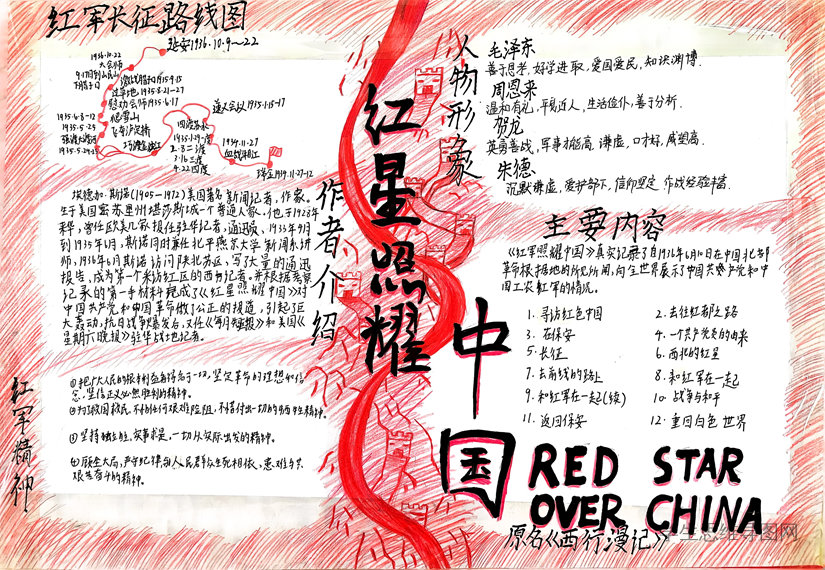 红军长征路线图
延安1936.10.9~22
1936.10.22
大会师
激战腊子口1935.9.15
过草地1935.8.21-27
懋功会师1935.6.17
1935.6.8-12
爬雪山
1935.5.29
飞夺泸定桥
强渡大渡河
巧渡金沙江
遵义会议1935.1.15-17
四渡赤水
1935.1.29一渡
2.8二渡
3.16三渡
4.22四渡
1934.11.27
血战湘江
瑞金1934.11.27-12
作者介绍
埃德加·斯诺(1905-1972)美国著名新闻记者,作家。
生于美国密苏里州堪莎斯城一个普通人家。他于1928年
来华,曾任欧美几家报社驻华记者,通迅员。1933年4月
到1935年6月,斯诺同时兼任北平燕京大学新闻系讲
师,1936年6月斯诺访问陕北苏区,写了大量的通迅
报告,成为第一个采访红区的西方记者。并根据考察
记录的第一手材料完成了《红星照耀中国》对
中国共产党和中国革命做了公正的报道,引起了巨
大轰动,抗日战争爆发后,又任《每日先驱报》和美国《
星期六晚报》驻华战地记者。
红军精神
①把广大人民的根本利益看得高于一切,坚定革命的理想和信
念,坚信正义必然胜利的精神。
②为了救国救民,不怕任何艰难险阻,不惜付出一切的牺牲精神。
③坚持独立自主,实事求是,一切从实际出发的精神。
④顾全大局,严守纪律,与人民群众生死相依,患难与共
艰苦奋斗的精神。
红星照耀
中国
RED STAR
OVER CHINA
原名《西行漫记》
人物形象
毛泽东
善于思考,好学进取,爱国爱民,知识渊博.
周恩来
温和有礼,平易近人,生活俭朴,善于分析.
贺龙
英勇善战,军事才能高,谦虚,口才好,威望高.
朱德
沉默谦虚,爱护部下,信仰坚定,作战经验丰富.
主要内容
《红星照耀中国》真实记录了自1936年6月10日在中国北部
革命根据地的所见所闻,向全世界展示了中国共产党和中
国工农红军的情况。
1. 寻访红色中国
2. 去往红都之路
3. 在保安
4. 一个共产党员的由来
5. 长征
6. 西北的红星
7. 去前线的路上
8. 和红军在一起
9. 和红军在一起(续)
10. 战争与和平
11. 返回保安
12. 重回白色世界
学生思维导图网